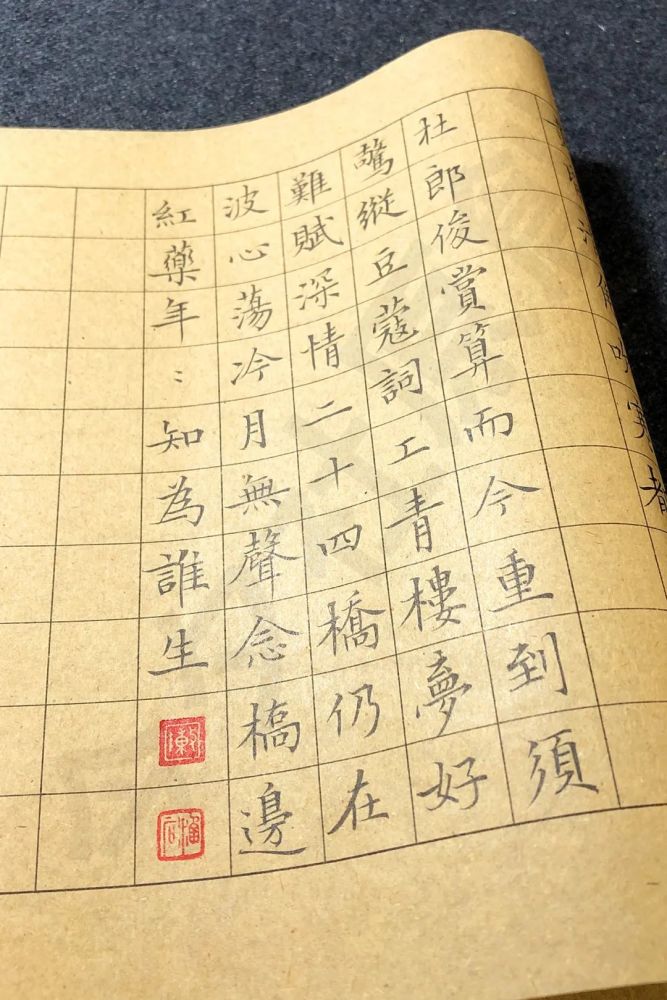 杜郎俊賞算而今重到須
驚縱豆蔻詞工青樓夢好
難賦深情二十四橋仍在
波心蕩冷月無聲念橋邊
紅藥年〻知為誰生